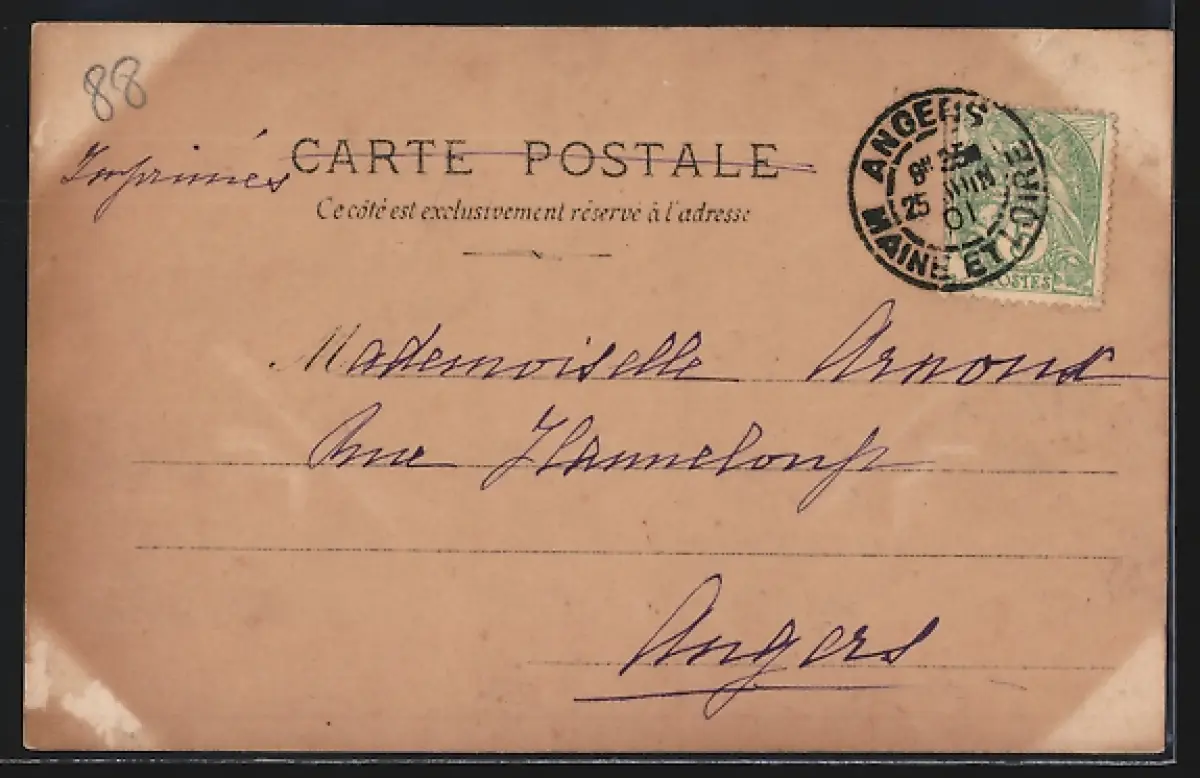 88
Imprimés
CARTE POSTALE
Ce côté est exclusivement réservé à l'adresse
ANGERS
8H 35M
25 JUIN
01
MAINE ET LOIRE
5
POSTES
Mademoiselle Arnoux
Rue Hanneloup
Angers